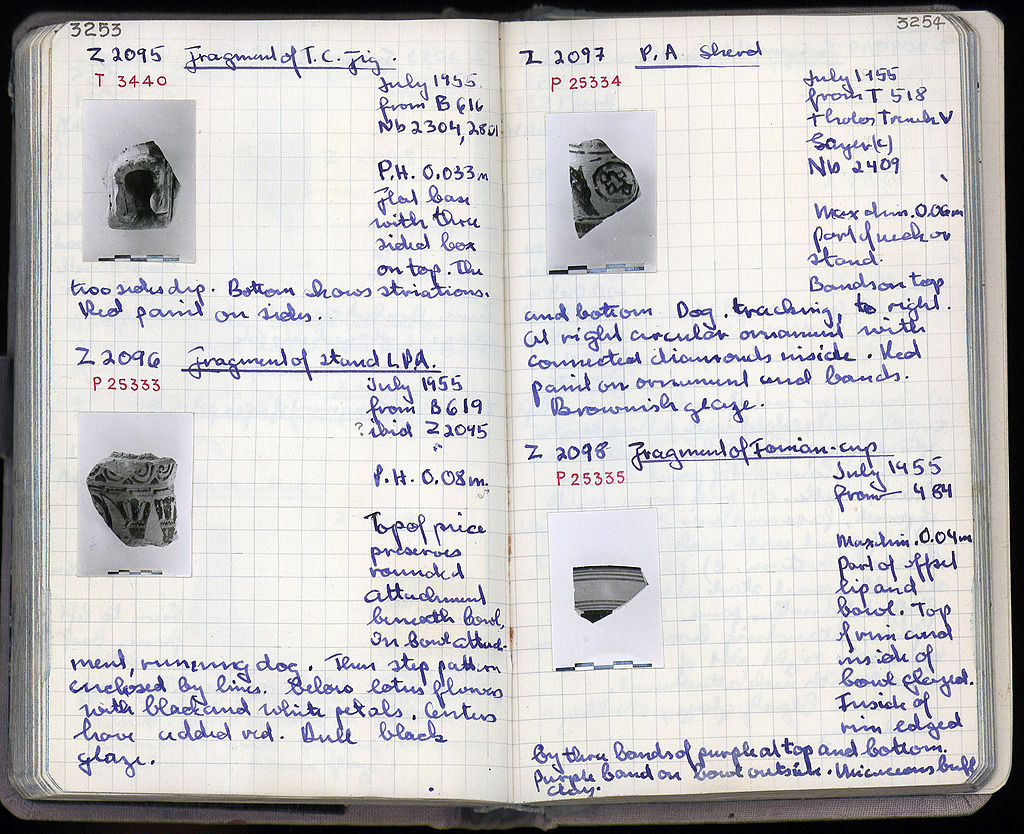 3253
Z 2095 Fragment of T.C. Fig.
T 3440
July 1955
from B 616
Nb 2304, 2801
P.H. 0.033m
Flat base
with three
sided box
on top. The
two sides dip. Bottom shows striations.
Red paint on sides.
Z 2096 Fragment of stand L.P.A.
P 25333
July 1955
from B 619
? ibid Z 2095
P.H. 0.08m.
Top of price
preserves
rounded
attachment
beneath bowl,
On bowl attach-
ment, running dog. Then step pattern
enclosed by lines. Below lotus flowers
with black and white petals. Centers
have added red. Dull black
glaze.
3254
Z 2097 P.A. Sherd
P 25334
July 1955
from T 518
Tholos Trench V
Layer (c)
Nb 2409
Max dim. 0.06m
part of neck or
stand.
Bands on top
and bottom. Dog, tracking, to right.
At right circular ornament with
connected diamonds inside. Red
paint on ornament and bands.
Brownish glaze.
Z 2098 Fragment of Ionian cup
P 25335
July 1955
from 484
Max dim. 0.04m
part of offset
lip and
bowl. Top
of rim and
inside of
bowl glazed.
Inside of
rim edged
by three bands of purple at top and bottom.
Purple band on bowl outside. Micaceous buff
clay.